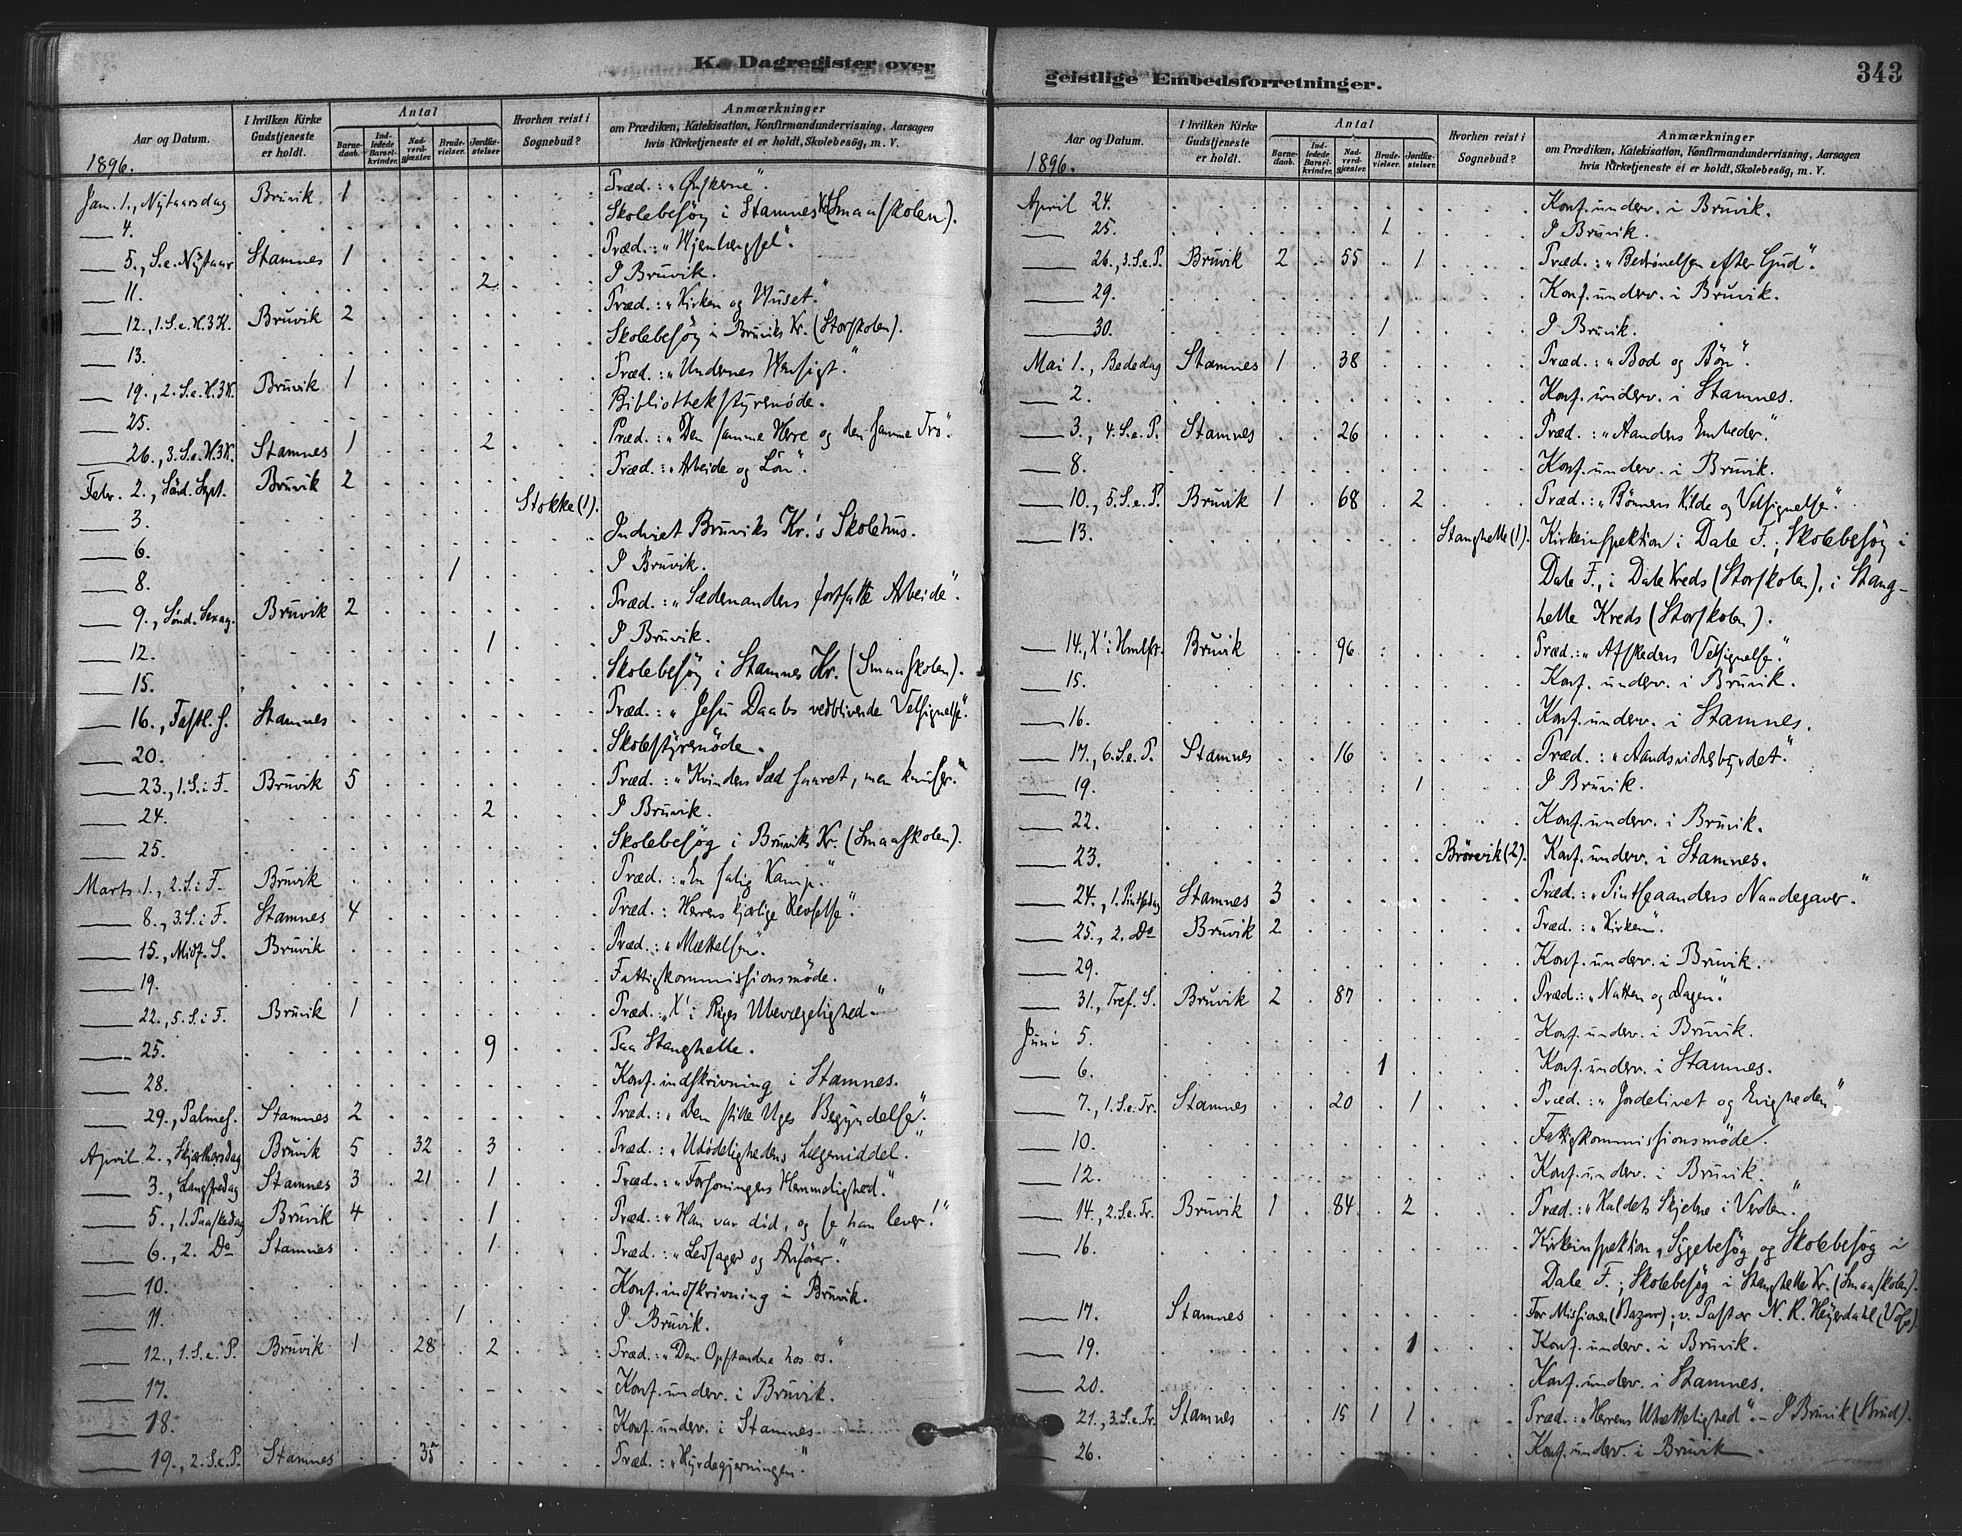 K. Dagregister over
Aar og Datum.
I hvilken Kirke Gudstjeneste er holdt.
Antal
Barne-daab.
Ind-ledede Barsel-kvinder.
Nad-verd-gjæster.
Brude-vielser.
Jordfæ-stelser.
Hvorhen reist i Sognebud?
Anmærkninger
om Prædiken, Katekisation, Konfirmandundervisning, Aarsagen
hvis Kirketjeneste ei er holdt, Skolebesög, m. V.
1896.
Jan. 1., Nytaarsdag Bruvik 1 Præd.: „Ønskerne".
4. Skolebesøg i Stamnes Kr. (Smaaskolen).
5., S. e. Nytaar Stamnes 1 Præd.: „Hjemlængsel".
11. 2 I Bruvik.
12., 1. S. e. H. 3 K. Bruvik 2 Præd.: „Kirken og Huset."
13. Skolebesøg i Bruviks Kr. (Storskolen).
19., 2. S. e. H. 3 K. Bruvik 1 Præd.: „Undernes Hensigt."
25. Bibliothekstyremøde.
26., 3. S. e. H. 3 K. Stamnes 1 2 Præd.: „Den samme Herre og den samme Tro".
Febr. 2., Sönd. Sept. Bruvik 2 Præd.: „Arbeide og Lön".
3. Stokke (1).
6. Indviet Bruviks Kr.'s Skolehus.
8. 1 I Bruvik.
9., Sönd. Sexag. Bruvik 2 Præd.: „Sædemandens fortsatte Arbeide".
12. 1 I Bruvik.
15. Skolebesøg i Stamnes Kr. (Smaaskolen).
16., Fastl. S. Stamnes Præd.: „Jesu Daabs vedblivende Velsignelse".
20. Skolestyremöde.
23., 1. S. i F. Bruvik 5 Præd.: „Kvindens Sæd saaret, men knuser."
24. 2 I Bruvik.
25. Skolebesøg i Bruviks Kr. (Smaaskolen).
Marts 1., 2. S. i F. Bruvik Præd.: „En salig Kamp."
8., 3. S. i F. Stamnes 4 Præd.: Herrens kjærlige Revselse".
15., Midf. S. Bruvik Præd.: „Mættelsen"
19. Fattigkommissionsmöde.
22., 5. S. i F. Bruvik 1 Præd.: „Xi Riges Ubevægelighed."
25. 9 Paa Stanghelle.
28. Konf. indskrivning i Stamnes.
29., Palmes. Stamnes 2 Præd.: „Den stille Uges Begyndelse".
April 2., Skjærtorsdag Bruvik 5 32 3 Præd.: „Udödelighedens Lægemiddel."
3., Langfredag Stamnes 3 21 1 Præd.: „Forsoningens Hemmelighed."
5., 1. Paaskedag Bruvik 4 1 Præd.: „Han var död, og se han lever!"
6., 2. Do Stamnes 1 Præd.: „Ledsager og Anförer."
10. Konf. indskrivning i Bruvik.
11. 1 I Bruvik.
12., 1. S. e. P. Bruvik 1 28 2 Præd.: „Den Opstandne hos os."
17. Konf. underv. i Bruvik.
18. Konf. underv. i Stamnes.
19., 2. S. e. P. Stamnes 35 Præd.: „Hyrdegjerningen."
geistlige Embedsforretninger.
343
Aar og Datum.
I hvilken Kirke Gudstjeneste er holdt.
Antal
Barne-daab.
Ind-ledede Barsel-kvinder.
Nad-verd-gjæster.
Brude-vielser.
Jordfæ-stelser.
Hvorhen reist i Sognebud?
Anmærkninger
om Prædiken, Katekisation, Konfirmandundervisning, Aarsagen
hvis Kirketjeneste ei er holdt, Skolebesög, m. V.
1896.
April 24. Konf. underv. i Bruvik.
25. 1 I Bruvik.
26., 3. S. e. P. Bruvik 2 55 1 Præd.: „Bedrövelsen efter Gud".
29. Konf. underv. i Bruvik.
30. 1 I Bruvik.
Mai 1., Bededag Stamnes 1 38 Præd.: „Bod og Bön".
2. Konf. underv. i Stamnes.
3., 4. S. e. P. Stamnes 26 Præd.: „Aandens Embeder".
8. Konf. underv. i Bruvik.
10., 5. S. e. P. Bruvik 1 68 2 Præd.: „Bönnens Kilde og Velsignelse".
13. Stanghelle (1). Kirkeinspektion i Dale F.; Skolebesøg i
Dale F., i Dale Kreds (Storskolen), i Stang-
helle Kreds (Storskolen).
14., Xi Hmlft. Bruvik 96 Præd.: „Afskedens Velsignelse".
15. Konf. underv. i Bruvik.
16. Konf. underv. i Stamnes.
17., 6. S. e. P. Stamnes 16 Præd.: „Aandsvidnesbyrdet."
19. 1 I Bruvik.
22. Konf. underv. i Bruvik.
23. Brörvik (2). Konf. underv. i Stamnes.
24., 1. Pintsedag Stamnes 3 Præd.: „Pintseaandens Naadegaver."
25., 2. Do Bruvik 2 Præd.: „Kirken".
29. Konf. underv. i Bruvik.
31., Tref. S. Bruvik 2 87 Præd.: „Natten og Dagen."
Juni 5. Konf. underv. i Bruvik.
6. 1 Konf. underv. i Stamnes.
7., 1. S. e. Tr. Stamnes 20 1 Præd.: „Jordelivet og Evigheden"
10. Fattigkommissionsmöde.
12. Konf. underv. i Bruvik.
14., 2. S. e. Tr. Bruvik 1 84 2 Præd.: „Kaldets Skjebne i Verden."
16. Kirkeinspektion, Sygebesøg og Skolebesøg i
Dale F.; Skolebesøg i Stanghelle Kr. (Smaaskolen).
17. Stamnes For Missionen (Bazar); v. Pastor N. R. Heyerdahl (Voss).
19. 1 Konf. underv. i Bruvik.
20. Konf. underv. i Stamnes.
21., 3. S. e. Tr. Stamnes 15 1 1 Præd.: „Herrens Utrættelighed". – I Bruvik (Brud).
26. Konf. underv. i Bruvik.